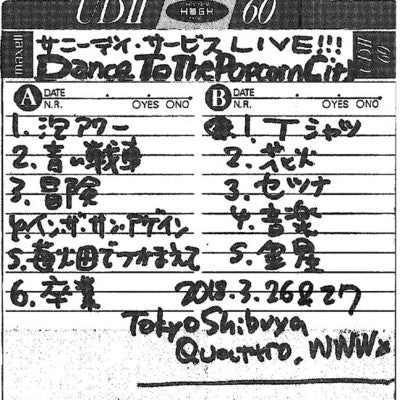 UDII HIGH 60
maxell
UDII 60
サニーデイ・サービス LIVE!!!
Dance To The Popcorn City
A DATE . . N.R. OYES ONO
1. 泡アワー
2. 青い戦車
3. 冒険
4. イン・ザ・サン・アゲイン
5. 苺畑でつかまえて
6. 卒業
B DATE . . N.R. OYES ONO
1. Tシャツ
2. 花火
3. セツナ
4. 音楽
5.金星
2018.3.26&27
Tokyo Shibuya
Quattro, WWWX